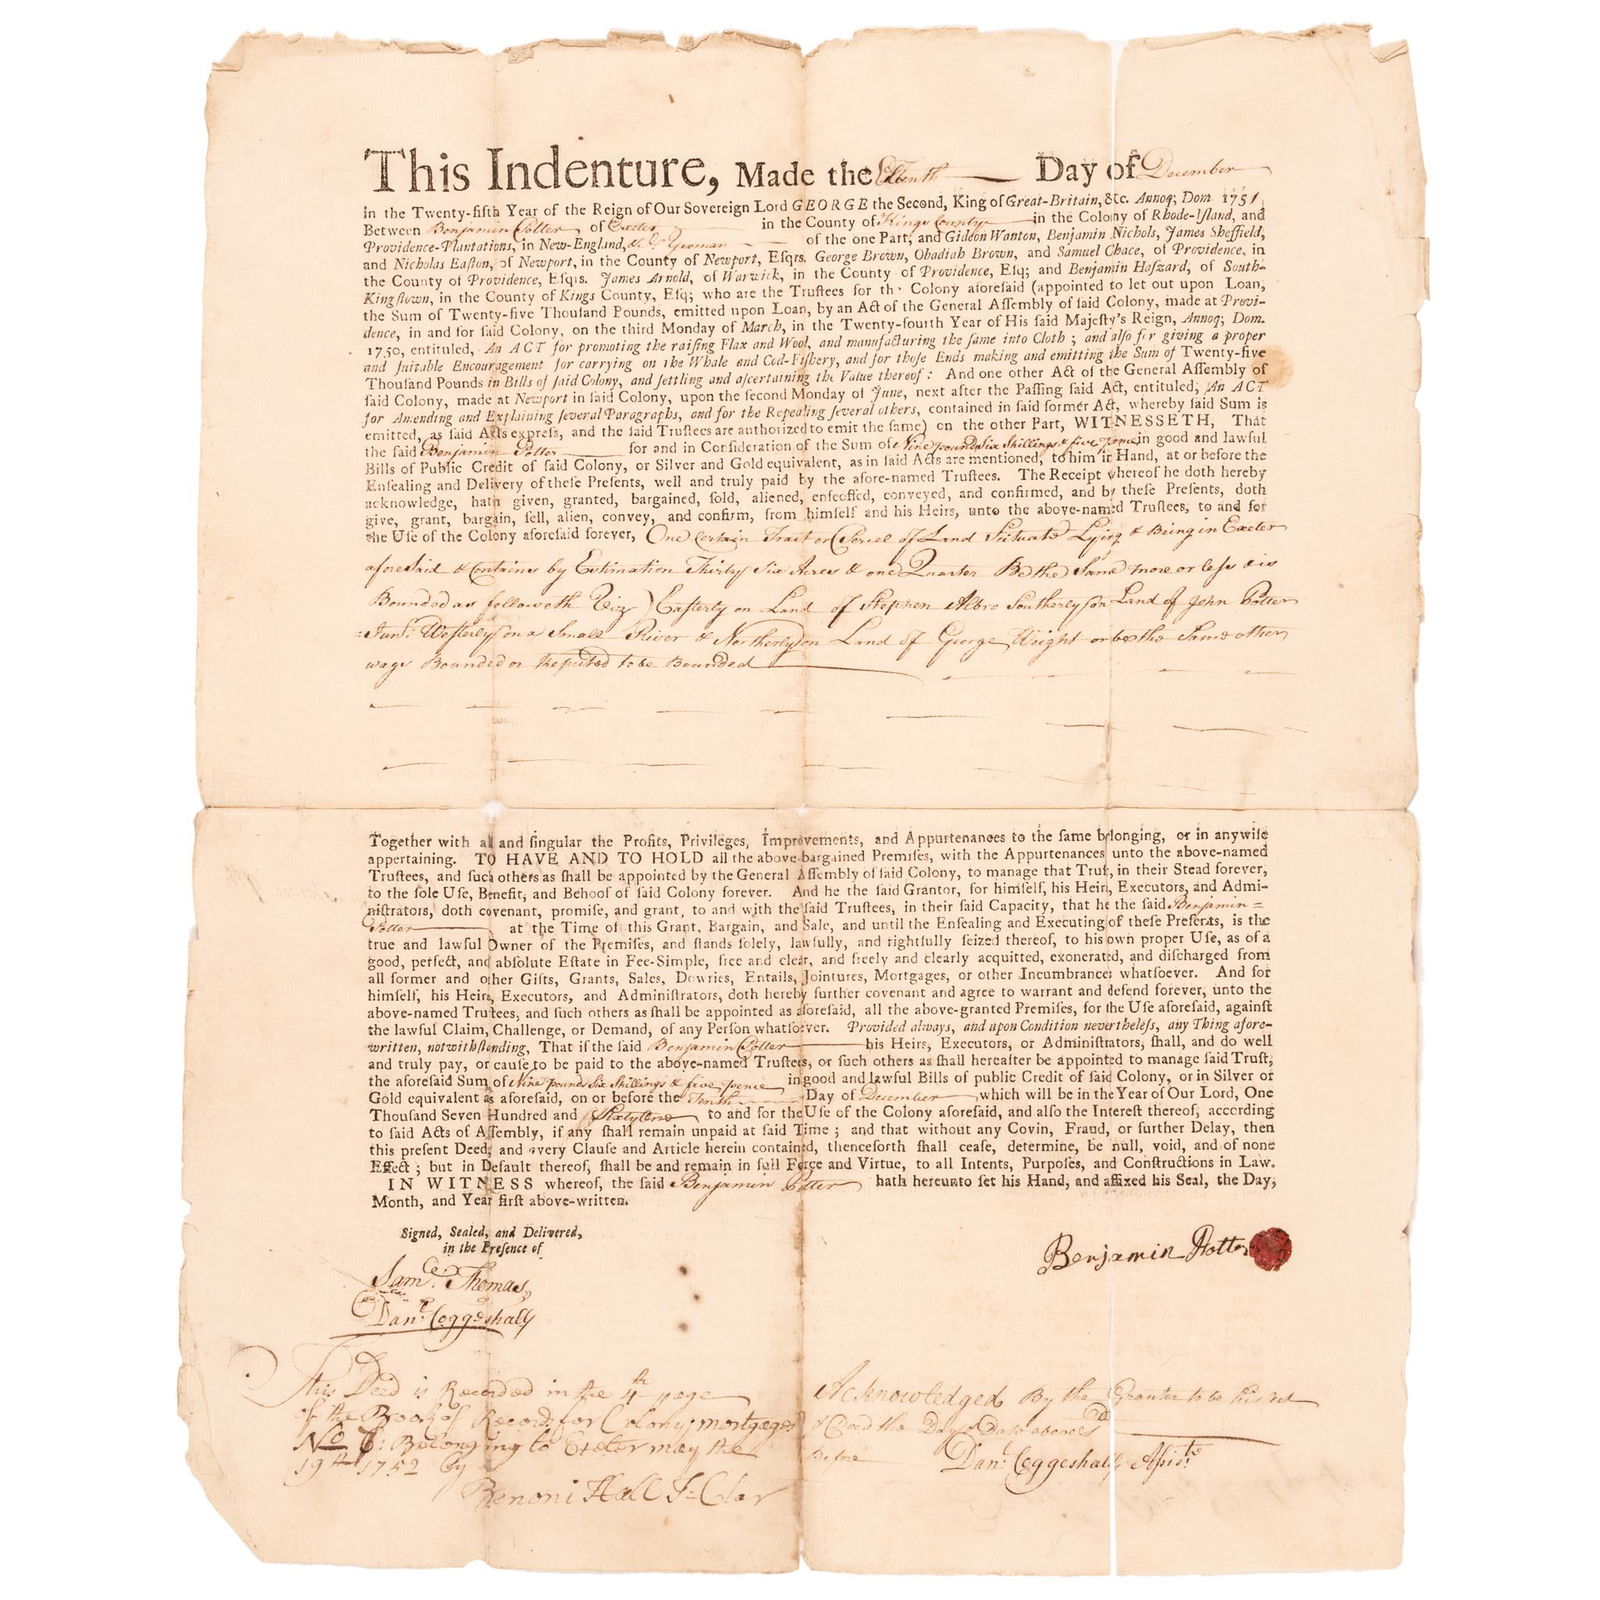 This Indenture, Made the Day of December
in the Twenty-fifth Year of the Reign of Our Sovereign Lord GEORGE the Second, King of Great-Britain, &c. Annoq; Dom 1751,
Between Benjamin Potter of Exeter in the County of Kings County in the Colony of Rhode-Island, and
Providence-Plantations, in New-England, &c. Yeoman of the one Part, and Gideon Wanton, Benjamin Nichols, James Sheffield,
and Nicholas Easton, of Newport, in the County of Newport, Esqrs. George Brown, Obadiah Brown, and Samuel Chace, of Providence, in
the County of Providence, Esqrs. James Arnold, of Warwick, in the County of Providence, Esq; and Benjamin Haſzard, of South-
Kingſtown, in the County of Kings County, Eſq; who are the Truſtees for the Colony aforeſaid (appointed to let out upon Loan,
the Sum of Twenty-five Thouſand Pounds, emitted upon Loan, by an Act of the General Aſſembly of ſaid Colony, made at Provi-
dence, in and for ſaid Colony, on the third Monday of March, in the Twenty-fourth Year of His ſaid Majeſty's Reign, Annoq; Dom.
1750, entituled, An ACT for promoting the raiſing Flax and Wool, and manufacturing the ſame into Cloth; and alſo for giving a proper
and ſuitable Encouragement for carrying on the Whale and Cod-Fiſhery, and for thoſe Ends making and emitting the Sum of Twenty-five
Thouſand Pounds in Bills of ſaid Colony, and ſettling and aſcertaining the Value thereof: And one other Act of the General Aſſembly of
ſaid Colony, made at Newport in ſaid Colony, upon the ſecond Monday of June, next after the Paſſing ſaid Act, entituled, An ACT
for Amending and Explaining ſeveral Paragraphs, and for the Repealing ſeveral others, contained in ſaid former Act, whereby ſaid Sum is
emitted, as ſaid Acts expreſs, and the ſaid Truſtees are authorized to emit the ſame) on the other Part, WITNESSETH, That
the ſaid Benjamin Potter for and in Conſideration of the Sum of Nine pounds Six Shillings & five pence in good and lawful
Bills of Public Credit of ſaid Colony, or Silver and Gold equivalent, as in ſaid Acts are mentioned, to him in Hand, at or before the
Enſealing and Delivery of theſe Preſents, well and truly paid by the afore-named Truſtees. The Receipt whereof he doth hereby
acknowledge, hath given, granted, bargained, ſold, aliened, enfeoffed, conveyed, and confirmed, and by theſe Preſents, doth
give, grant, bargain, ſell, alien, convey, and confirm, from himſelf and his Heirs, unto the above-named Truſtees, to and for
the Uſe of the Colony aforeſaid forever, One Certain Tract or Parcel of Land Scituate Lying & Being in Exeter
aforeSaid & Contains by Estimation Thirty Six Acres & one Quarter Be the Same more or leſs & is
Bounded as followeth Viz) Easterly on Land of Stephen Albro Southerly on Land of John Potter
Junr. Westerly on a Small River & Northerly on Land of George or be the Same other
ways Bounded or Reputed to be Bounded
Together with all and ſingular the Profits, Privileges, Improvements, and Appurtenances to the ſame belonging, or in anywiſe
appertaining. TO HAVE AND TO HOLD all the above-bargained Premiſes, with the Appurtenances unto the above-named
Truſtees, and ſuch others as ſhall be appointed by the General Aſſembly of ſaid Colony, to manage that Truſt, in their Stead forever,
to the ſole Uſe, Benefit, and Behoof of ſaid Colony forever. And he the ſaid Grantor, for himſelf, his Heirs, Executors, and Admi-
niſtrators, doth covenant, promiſe, and grant, to and with the ſaid Truſtees, in their ſaid Capacity, that he the ſaid Benjamin=
Potter at the Time of this Grant, Bargain, and Sale, and until the Enſealing and Executing of theſe Preſents, is the
true and lawful Owner of the Premiſes, and ſtands ſolely, lawfully, and rightfully ſeized thereof, to his own proper Uſe, as of a
good, perfect, and abſolute Eſtate in Fee-Simple, free and clear, and freely and clearly acquitted, exonerated, and diſcharged from
all former and other Gifts, Grants, Sales, Dowries, Entails, Jointures, Mortgages, or other Incumbrances whatſoever. And for
himſelf, his Heirs, Executors, and Adminiſtrators, doth hereby further covenant and agree to warrant and defend forever, unto the
above-named Truſtees, and ſuch others as ſhall be appointed as aforeſaid, all the above-granted Premiſes, for the Uſe aforeſaid, againſt
the lawful Claim, Challenge, or Demand, of any Perſon whatſoever. Provided always, and upon Condition nevertheleſs, any Thing afore-
written, notwithſtanding, That if the ſaid Benjamin Potter his Heirs, Executors, or Adminiſtrators, ſhall, and do well
and truly pay, or cauſe to be paid to the above-named Truſtees, or ſuch others as ſhall hereafter be appointed to manage ſaid Truſt,
the aforeſaid Sum of Nine pounds Six Shillings & five pence in good and lawful Bills of public Credit of ſaid Colony, or in Silver or
Gold equivalent as aforeſaid, on or before the Tenth Day of December which will be in the Year of Our Lord, One
Thouſand Seven Hundred and Sixty One to and for the Uſe of the Colony aforeſaid, and alſo the Intereſt thereof, according
to ſaid Acts of Aſſembly, if any ſhall remain unpaid at ſaid Time; and that without any Covin, Fraud, or further Delay, then
this preſent Deed, and every Clauſe and Article herein contained, thenceforth ſhall ceaſe, determine, be null, void, and of none
Effect; but in Default thereof, ſhall be and remain in full Force and Virtue, to all Intents, Purpoſes, and Conſtructions in Law.
IN WITNESS whereof, the ſaid Benjamin Potter hath hereunto ſet his Hand, and affixed his Seal, the Day,
Month, and Year firſt above-written.
Signed, Sealed, and Delivered,
in the Preſence of
Benjamin Potter
Samll. Thomas
Danl. Coggeshall
This Deed is Recorded in the 4th page
of the Book of Records for Colony mortgages
No 6: Belonging to Exeter may the
19th 1752 by
Benoni Hall
Acknowledged By the Granter to be his act
& Deed the Day & Date above
Before Danl. Coggeshall